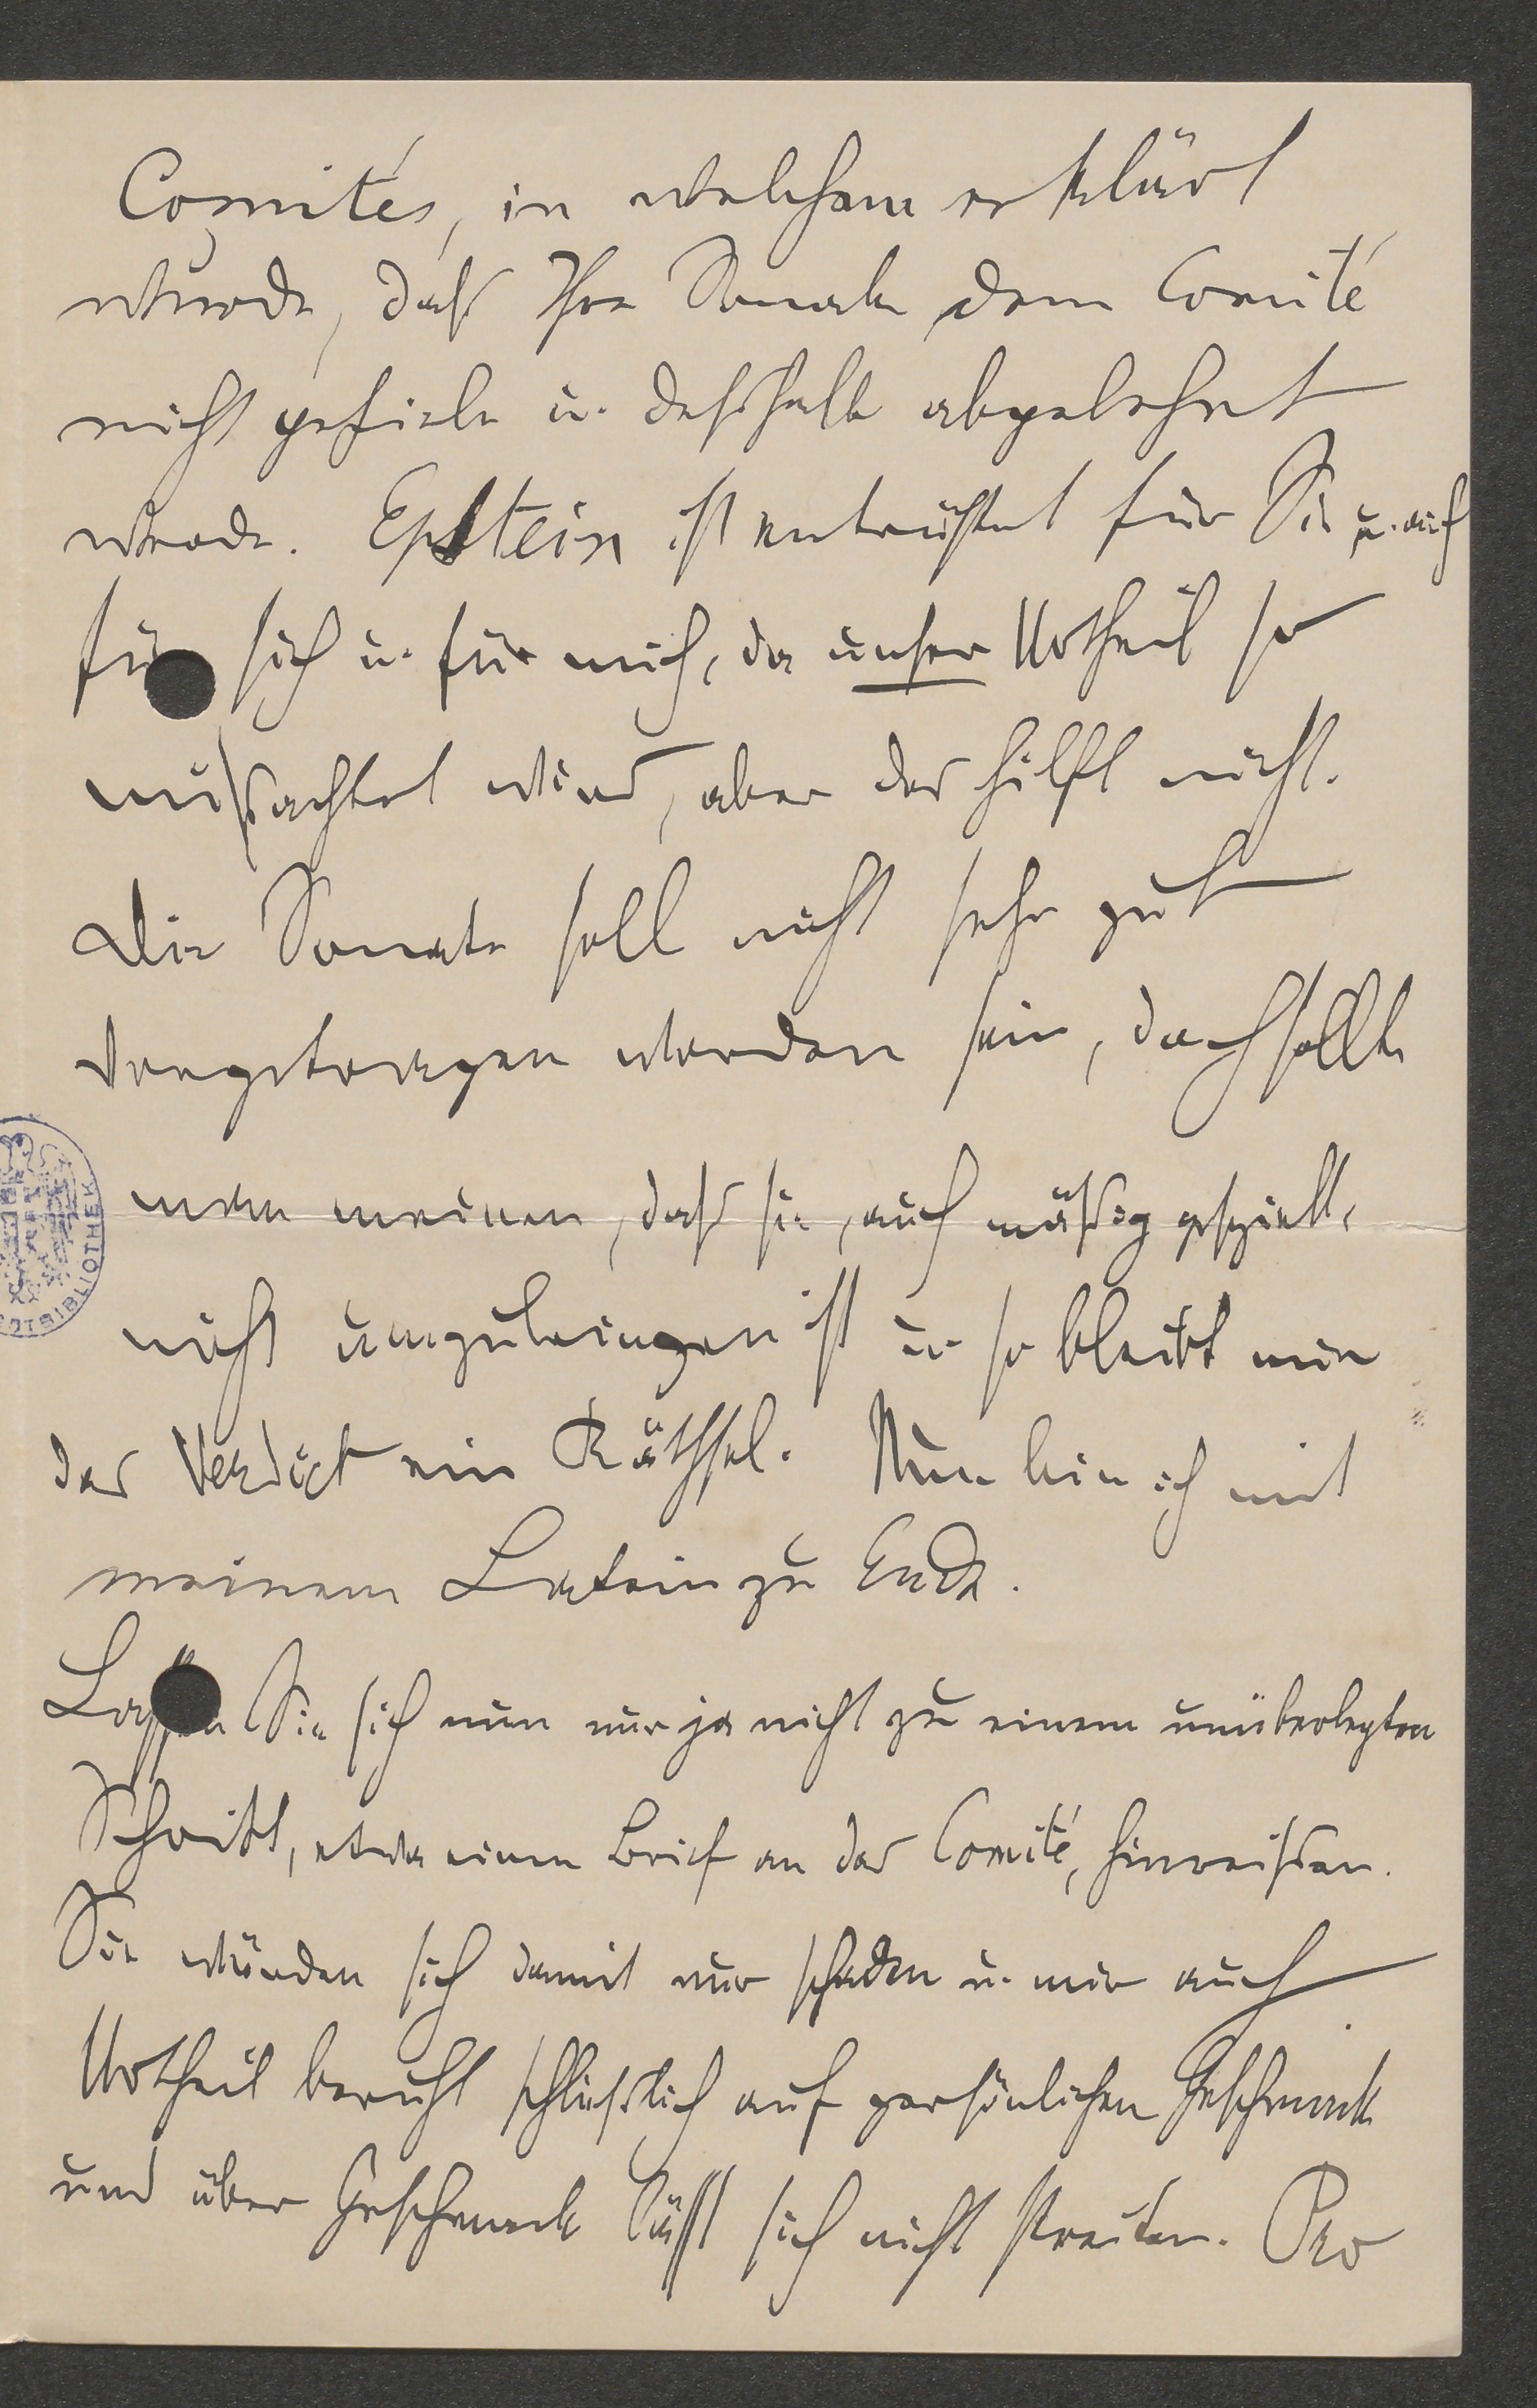 Comités, in welchem erklärt
wurde, daß Ihre Sonate dem Comité
nicht gefiele u. deßhalb abgelehnt
werde. Epstein ist entrüstet für Sie u. auch
für sich u. für mich, da unser Urtheil so
mißachtet wird, aber das hilft nicht.
Die Sonate soll nicht sehr gut
vorgetragen worden sein, doch sollte
man meinen, daß sie, auch mäßig gespielt,
nicht umzubringen ist u. so bleibt mir
das Verdict ein Räthsel. Nun bin ich mit
meinem Latein zu Ende.
Lassen Sie sich nun nur ja nicht zu einem unüberlegten
Schritt, etwa einem Brief an das Comité, hinreißen.
Sie würden sich damit nur schaden u. mir auch
Urtheil beruht schließlich auf persönlichen Geschmack
und über Geschmack läßt sich nicht streiten. Pro
BIBLIOTHEK